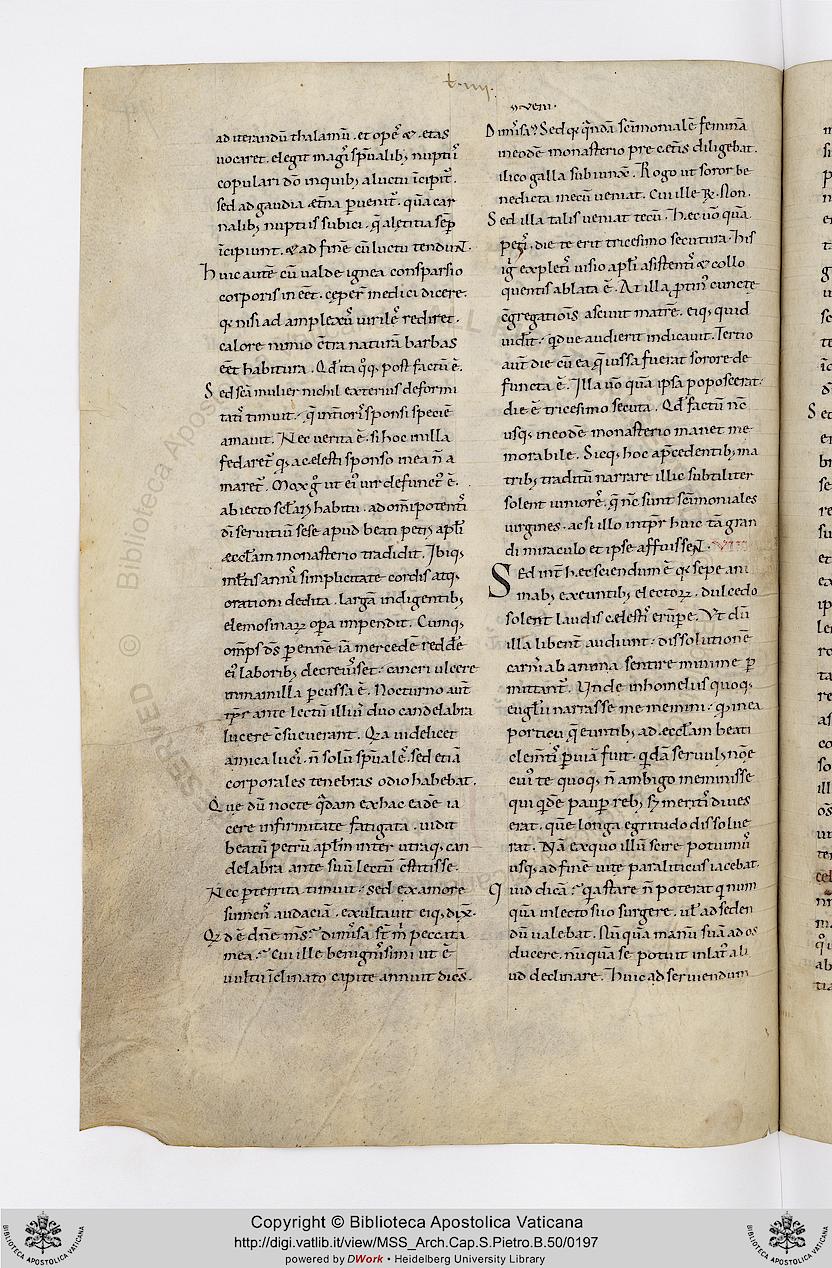 t·iiii·
ad iterandū thalamū . et opeſ & . etas
uocaret . elegit magiſ sp̄ualib; nuptiſ
copulari dō in quib; a luctu īcipit̄ .
sed ad gaudia . ęt̄na p̄uenit̄ . quā car
nalib; nuptiis subici . q̄ a lętitia sēp
īcipiunt . & ad finē cū luctu tendun̄ .
Huic autē cū ualde ignea consparsio
corporis inēet . ceper̄ medici dicere .
q; nisi ad amplexuſ uirileſ rediret .
calore nimio c̄tra naturā barbas
eēt habitura . Qđ ita q;q; post factū ē .
Sed sc̄a mulier nichil exterius deformi
tatiſ timuit . q̄ int̄ioriſ sponsi speciē
amauit . Nec uerita ē . si hoc in illa
fędaret̄ . q; a cęlesti sponso in ea n̄ a
maret̄ . Mox ḡ ut ei' uir defunct' ē .
abiecto scl̄ari habitu . ad omīpotentiſ
dī seruitiū sese apud beati petri apl̄i
ęccl̄am monasterio tradidit . Ibiq;
ml̄tis anniſ simplicitate cordis atq;
orationi dedita . largā indigentib;
elemosinaꝝ op̄a impendit . Cumq;
om̄ps ds̄ p̄ennē iā mercedē reddē
ei' laborib; decreuisset . cancri ulcere
in mamilla p̄cussa ē . Nocturno aūt
tp̄r ante lectū illiuſ duo candelabra
lucere c̄sueuerant . Qia uidelicet
amica luciſ . n̄ solū sp̄ualeſ . sed etiā
corporales tenebras odio habebat .
Que dū nocte q̄dam ex hac eadē ia
cere infirmitate fatigata . uidit
beatū petrū apl̄m inter utraq; can
delabra ante suū lectū c̄stitisse .
Nec p̄territa timuit . sed ex amore
sumenſ audaciā . exultauit eiq; dix̄ .
Qd ē dn̄e ms̄ ? dimissa st̄ m̄ peccata
mea ? Cui ille benignissimi ut ē
uultuſ īclinato capite annuit dicēs .
ueni .
Dimissa ? Sed q; q̄ndā sc̄imonialē feminā
in eodē monasterio pre cęt̄is diligebat .
ilico galla subiunx̄ . Rogo ut soror be
nedicta mecū ueniat . Cui ille R̄ . Non .
Sed illa talis ueniat tecū . Hec uō quā
petiſ . die te erit tricesimo secutura . His
iḡ expletiſ uisio apl̄i asistentiſ & collo
quentis ablata ē . At illa p̄tin' cuncte
c̄gregationis asciuit matrē . eiq; quid
uidit . qd ue audierit indicauit . Tertio
aūt die cū ea q̄ iussa fuerat sorore de
functa ē . Illa uō quā ipsa poposcerat .
die ē tricesimo secuta . Qđ factū nc̄
usq; in eodē monasterio manet me
morabile . Sicq; hoc a p̄cedentib; ma
trib; traditū narrare illic subtiliter
solent iunioreſ . q̄ nc̄ sunt sc̄imoniales
uirgines . ac si illo intp̄r huic tā gran
di miraculo et ipse affuissen̄ . VIII
SEd int̄ hęc sciendum ē q; sepe ani
mab; exeuntib; electoꝝ . dulcedo
solent laudis cęlestiſ erūpe . Ut dū
illa libent̄ audiunt . dissolutionē
carniſ ab anima sentire minime p̄
mittant̄ . Unde in homeliis quoq;
eugl̄ii narrasse me memini . q; in ea
porticu q̄ euntib; ad . ęccl̄am beati
clem̄tiſ p̄ uiā fuit . q̇dā seruul; nōe
cui' te quoq; n̄ ambigo meminisse
qui q̇dē paup̄ reb; s; meritiſ diues
erat . quē longa egritudo dissolue
rat . Nā ex quo illū scire potuim'
usq; ad finē uite paraliticus iacebat .
Quid dicā ? q̇a stare n̄ poterat q num
quā in lecto suo surgere . ul̄ ad seden
dū ualebat . Nūquā manū suā ad os
ducere . nūquā se potuit in lat' ali
ud declinare . Huic ad seruiendum
Copyright © Biblioteca Apostolica Vaticana
http://digi.vatlib.it/view/MSS_Arch.Cap.S.Pietro.B.50/0197
powered by DWork • Heidelberg University Library